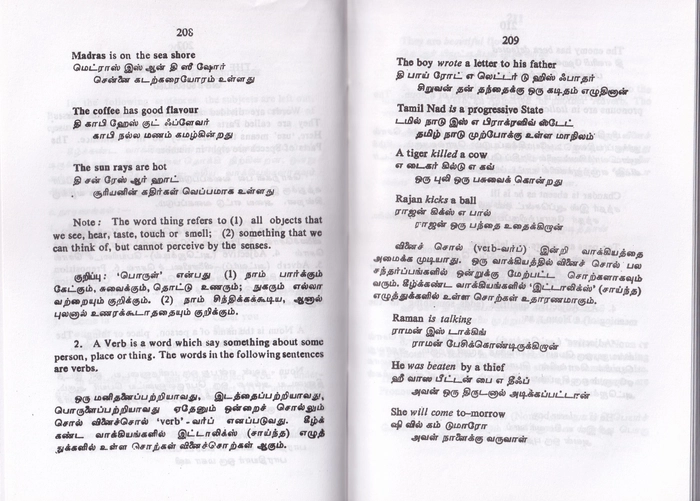 208
Madras is on the sea shore
மெட்ராஸ் இஸ் ஆன் தி ஸீ ஷோர்
சென்னை கடற்கரையோரம் உள்ளது
The coffee has good flavour
தி காபி ஹேஸ் குட் ஃப்ளேவர்
காபி நல்ல மணம் கமழ்கின்றது
The sun rays are hot
தி சன் ரேஸ் ஆர் ஹாட்
சூரியனின் கதிர்கள் வெப்பமாக உள்ளது
Note : The word thing refers to (1) all objects that
we see, hear, taste, touch or smell; (2) something that we
can think of, but cannot perceive by the senses.
குறிப்பு: ‘பொருள்’ என்பது (1) நாம் பார்க்கும்
கேட்கும், சுவைக்கும், தொட்டு உணரும்; நுகரும் எல்லா
வற்றையும் குறிக்கும். (2) நாம் சிந்திக்கக்கூடிய, ஆனால்
புலனால் உணரக்கூடாததையும் குறிக்கும்.
2. A Verb is a word which say something about some
person, place or thing. The words in the following sentences
are verbs.
ஒரு மனிதனைப்பற்றியாவது, இடத்தைப்பற்றியாவது,
பொருளைப்பற்றியாவது ஏதேனும் ஒன்றைச் சொல்லும்
சொல் வினைச்சொல் ‘verb’-வர்ப் எனப்படுவது. கீழ்க்
கண்ட வாக்கியங்களில் இட்டாலிக்ஸ் (சாய்ந்த) எழுத்
துக்களில் உள்ள சொற்கள் வினைச்சொற்கள் ஆகும்.
209
The boy wrote a letter to his father
தி பாய் ரோட் எ லெட்டர் டு ஹிஸ் ஃபாதர்
சிறுவன் தன் தந்தைக்கு ஒரு கடிதம் எழுதினான்
Tamil Nad is a progressive State
டமில் நாடு இஸ் எ பிராக்ரஸிவ் ஸ்டேட்
தமிழ் நாடு முற்போக்கு உள்ள மாநிலம்
A tiger killed a cow
எ டைகர் கில்டு எ கவ்
ஒரு புலி ஒரு பசுவைக் கொன்றது
Rajan kicks a ball
ராஜன் கிக்ஸ் எ பால்
ராஜன் ஒரு பந்தை உதைக்கிறான்
வினைச் சொல் (verb-வர்ப்) இன்றி வாக்கியத்தை
அமைக்க முடியாது. ஒரு வாக்கியத்தில் வினைச் சொல் பல
சந்தர்ப்பங்களில் ஒன்றுக்கு மேற்பட்ட சொற்களாகவும்
வரும். கீழ்க்கண்ட வாக்கியங்களில் ‘இட்டாலிக்ஸ்’ (சாய்ந்த)
எழுத்துக்களில் உள்ள சொற்கள் உதாரணமாகும்.
Raman is talking
ராமன் இஸ் டாக்கிங்
ராமன் பேசிக்கொண்டிருக்கிறான்
He was beaten by a thief
ஹீ வாஸ பீட்டன் பை எ தீஃப்
அவன் ஒரு திருடனால் அடிக்கப்பட்டான்
She will come to-morrow
ஷி வில் கம் டுமாரோ
அவள் நாளைக்கு வருவாள்